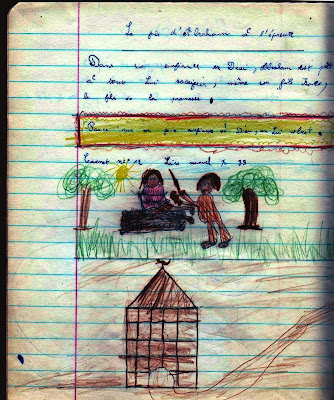 La foi d'Abraham à l'épreuve
Dans sa confiance en Dieu, Abraham est prêt
à tout Lui sacrifier, même son fils Isaac,
le fils de la promesse.
Parce que on a confiance à Dieu, on Lui obéit.
n° 12